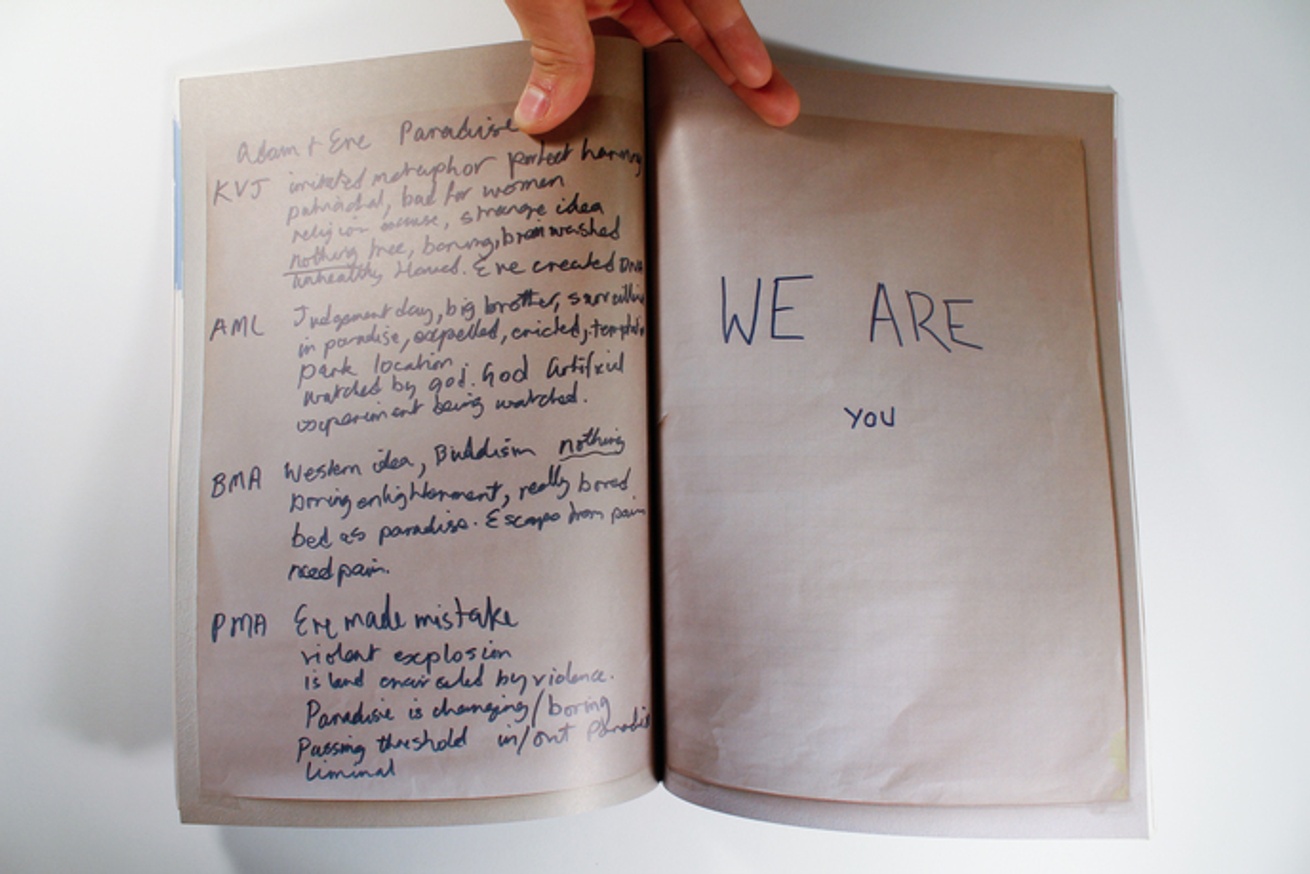 Adam + Eve Paradise
KVJ metaphor perfect harmony
patriachal, bad for women
religion, strange idea
nothing free, boring, brainwashed
unhealthy. Eve created DNA
AML Judgement day, big brother,
in paradise, expelled, evicted,
park location.
watched by god. God Artificial
experiment being watched.
BMA Western idea, Buddism nothing
enlightenment, really bored
bed as paradise. Escape from pain
need pain.
PMA Eve made mistake
violent explosion
island encircled by violence.
Paradise is changing/boring
Passing threshold in/out Paradise
liminal
WE ARE
YOU